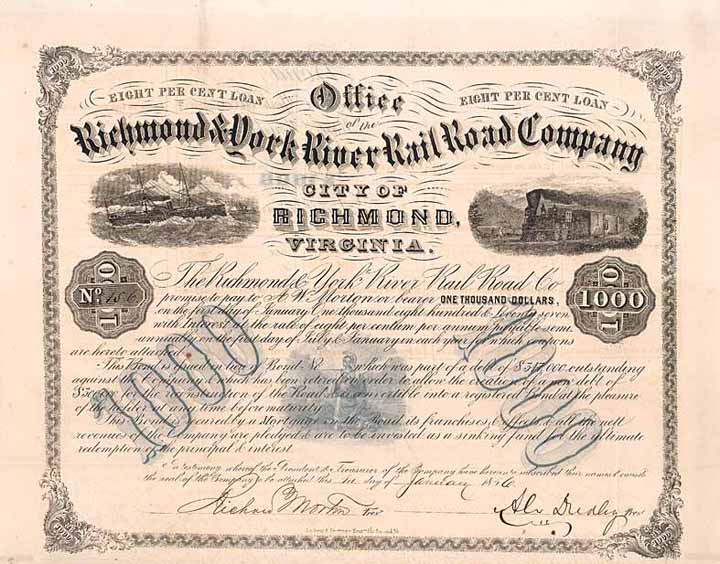 EIGHT PER CENT LOAN Office EIGHT PER CENT LOAN
of the
Richmond & York River Rail Road Company
CITY OF
RICHMOND,
VIRGINIA.
The Richmond & York River Rail Road Co
No 156 1000
promise to pay to A. W. Morton or bearer ONE THOUSAND DOLLARS,
on the first day of January One thousand eight hundred & Seventy seven
with Interest at the rate of eight per centum per annum payable semi
annually on the first days of July & January in each year for which coupons
are hereto attached
This Bond is issued in lieu of Bond No which was part of a debt of outstanding
against the Company & which has been retired in order to allow the creation of a new debt of
for the construction of the Road & is convertible into a registered Bond at the pleasure
of the holder at any time before maturity
This Bond is secured by a Mortgage on the Road, its franchises & effects & all the nett
revenues of the Company are pledged & are to be invested as a sinking fund for the ultimate
redemption of the principal & interest.
1000 1000
In testimony whereof the President & Treasurer of the Company have hereunto subscribed their names & caused
the seal of the Company to be attached this 1st day of January
Richard Morton A Dudley